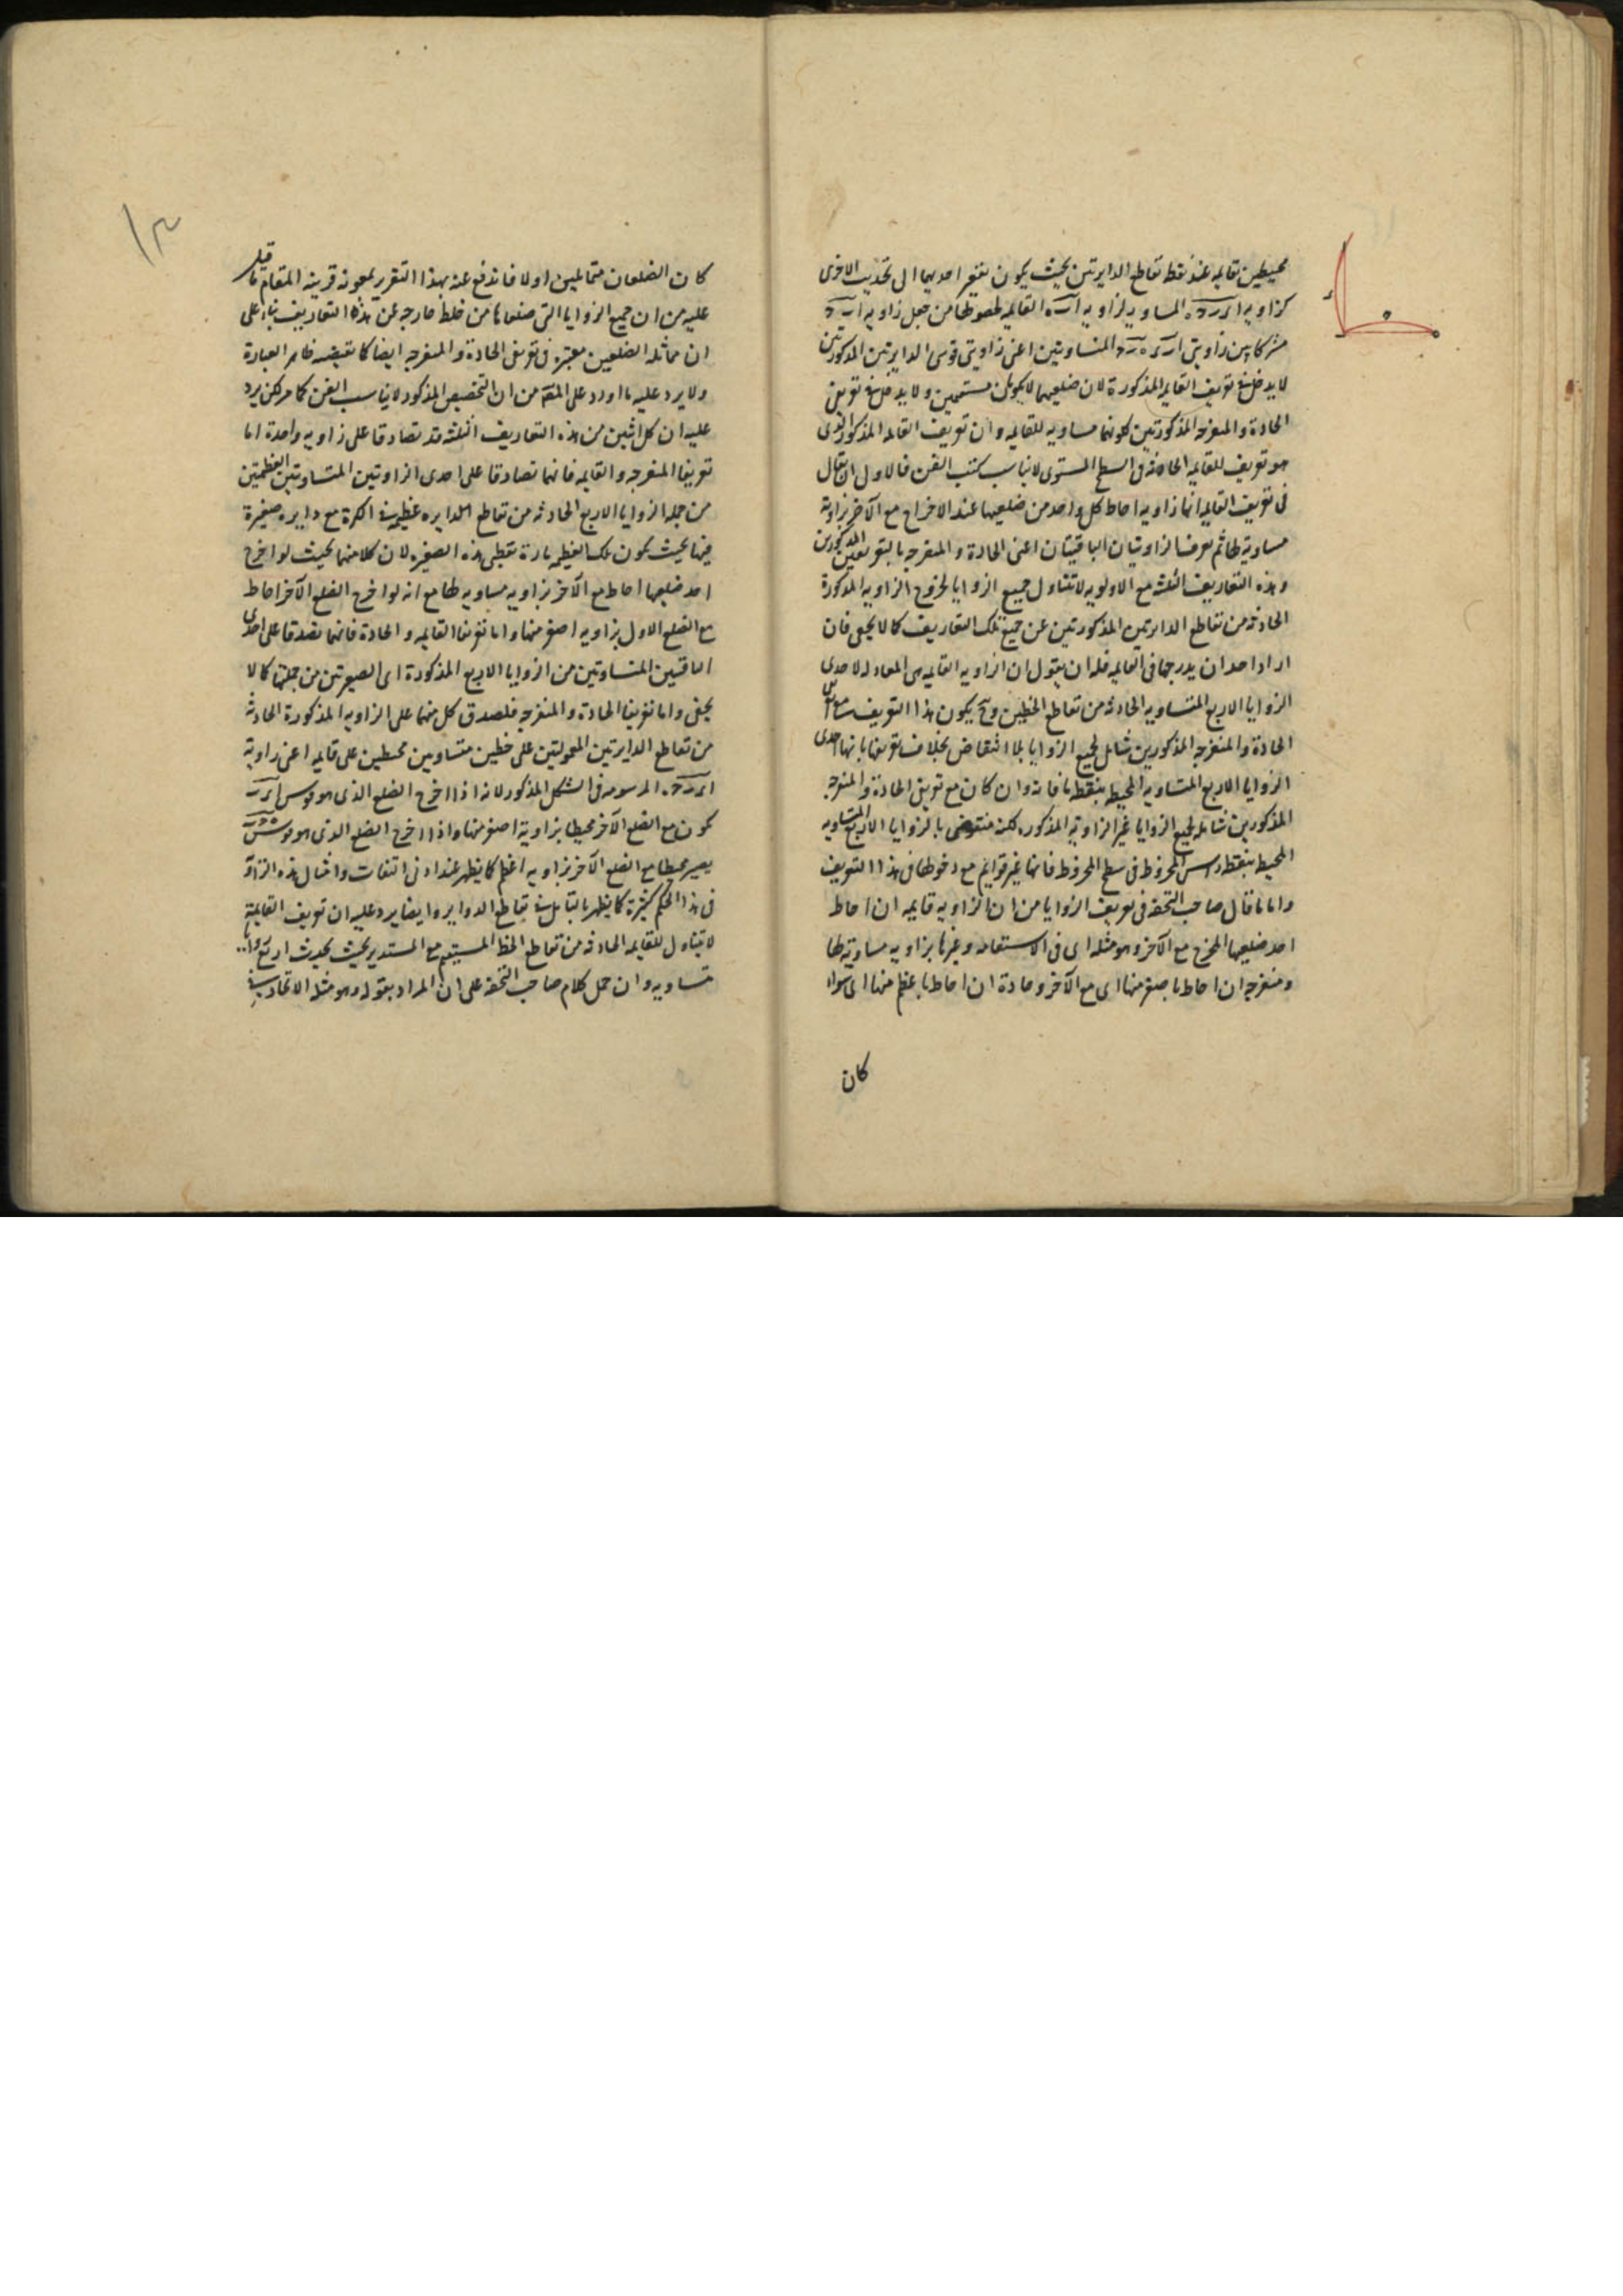 محيطين بقايمه عند نقطة تقاطع الدايرتين بحيث يكون تقعير احديهما الى تحديب الاخرى
كزاويه المساويه لزاويه القايمه لحصولها من جعل زاويه
مشتركا بين زاويتى المتساويتين اعنى زاويتى قوسى الدايرتين المذكورتين
لا يدخل فى تعريف القايمه المذكورة لان ضلعيهما لا يكونان مستقيمين ولا يدخل فى تعريفى
الحادة والمنفرجه المذكورتين لكونها مساويه للقايمه وان تعريف القايمه المذكور الذى
هو تعريف للقايمه الحادثه فى السطح المستوى لا يناسب كتب الفن فالاولى ان يقال
فى تعريف القايمه انها زاويه احاط كل واحد من ضلعيها عند الاخراج مع الآخر بزاوية
مساوية لها ثم يعرف الزاويتان الباقيتان اعنى الحادة والمنفرجه بالتعريفين المذكورين
وهذه التعاريف الثلثه مع الاولويه لا تتناول جميع الزوايا لخروج الزاويه المذكورة
الحادثه من تقاطع الدايرتين المذكورتين عن جميع تلك التعاريف كما لا يخفى فان
اراد احد ان يدرجها فى القايمه فله ان يقول ان الزاويه القايمه هى المعادله لاحدى
الزوايا الاربع المتساويه الحادثه من تقاطع الخطين وح يكون هذا التعريف مع تعريفى
الحادة والمنفرجه المذكورين شامل لجميع الزوايا بلا انتقاض بخلاف تعريفها بانها احدى
الزوايا الاربع المتساويه المحيطه بنقطه فانه وان كان مع تعريفى الحادة والمنفرجه
المذكورين شامله لجميع الزوايا غير الزاوية المذكوره لكنه منتقض بالزوايا الاربع المتساويه
المحيطه بنقطة رأس المخروط فى سطح المخروط فانها غير قوايم مع دخولها فى هذا التعريف
واما ما قال صاحب التحفه فى تعريف الزوايا من ان الزاويه قايمه ان احاط
احد ضلعيها المخرج مع الآخر وهو مثله اى فى الاستقامه وغيرها بزاويه مساوية لها
ومنفرجه ان احاط باصغر منها اى مع الآخر وحادة ان احاط باعظم منها اى سواء
كان
كان الضلعان متماثلين اولا فاندفع عنه بهذا التقرير بمعونه قرينه المقام ما قيل
عليه من ان جميع الزوايا التى ضلعاها من خلط خارجه عن هذه التعاريف بناء على
ان مماثله الضلعين معتبره فى تعريفى الحادة والمنفرجه ايضا كما يقتضيه ظاهر العبارة
ولا يرد عليه ما اورد على المقه من ان التخصيص المذكور لا يناسب الفن كما مر لكن يرد
عليه ان كل اثنين من هذه التعاريف الثلثه قد تصادقا على زاويه واحدة اما
تعريفا المنفرجه والقايمه فانهما تصادقا على احدى الزاويتين المتساويتين العظيمتين
من جمله الزوايا الاربع الحادثه من تقاطع الدايره عظيمه فى الكرة مع دايره صغيرة
فيها بحيث يكون تلك العظيمه مارة بقطبى هذه الصغيره لان كلا منهما بحيث لو اخرج
احد ضلعيها احاط مع الآخر بزاويه مساويه لها مع انه لو اخرج الضلع الآخر احاط
مع الضلع الاول بزاويه اصغر منها واما تعريفا القايمه والحادة فانهما تصدقا على احدى
الباقيتين المتساويتين من الزوايا الاربع المذكورة اى الصغيرتين من جملتها كما لا
يخفى واما تعريفا الحادة والمنفرجه فلصدق كل منهما على الزاويه المذكورة الحادثه
من تقاطع الدايرتين المعمولتين على خطين متساويين محيطين على قايمه اعنى زاوية
المرسومه فى الشكل المذكور لانه اذا اخرج الضلع الذى هو قوس
يكون مع الضلع الآخر محيطا بزاوية اصغر منها واذا اخرج الضلع الذى هو قوس
يصير محيطا مع الضلع الآخر بزاويه اعظم كما يظهر عند ادنى التفات وامثال هذه الزاوية
فى هذا الحكم كثيرة كما يظهر بالتأمل فى تقاطع الدواير وايضا يرد عليه ان تعريف القايمة
لا يتناول للقايمه الحادثه من تقاطع الخط المستقيم مع المستدير بحيث يحدث اربع زوايا
متساويه وان حمل كلام صاحب التحفه على ان المراد بقوله وهو مثله الاتحاد فى